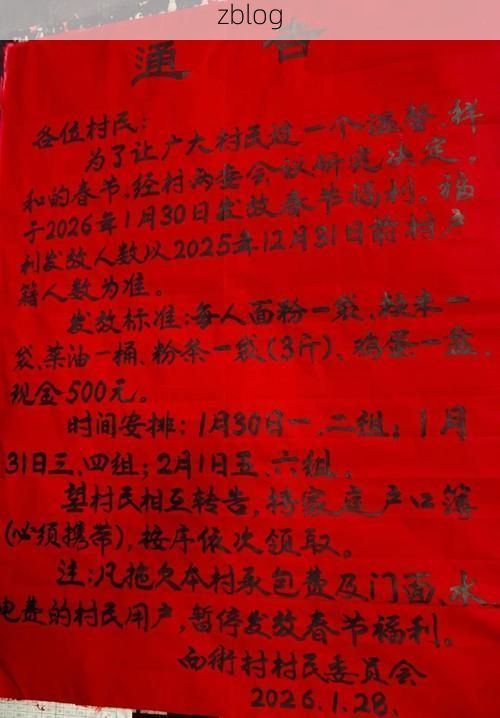 zblog
通告
各位村民:
为了让广大村民过一个温馨、祥
和的春节,经村两委会议研究决定,
于2026年1月30日发放春节福利。福
利发放人数以2025年12月31日前村户
籍人数为准。
发放标准:每人面粉一袋、粳米一
袋、菜油一桶、粉条一袋(3斤)、鸡蛋一盘,
现金500元。
时间安排:1月30日一、二组;1月
31日三、四组;2月1日五、六组。
望村民相互转告,持家庭户口簿
(必须携带),按序依次领取。
注:凡拖欠本村承包费及门面、水、
电费的村民用户,暂停发放春节福利。
向街村村民委员会
2026.1.28.